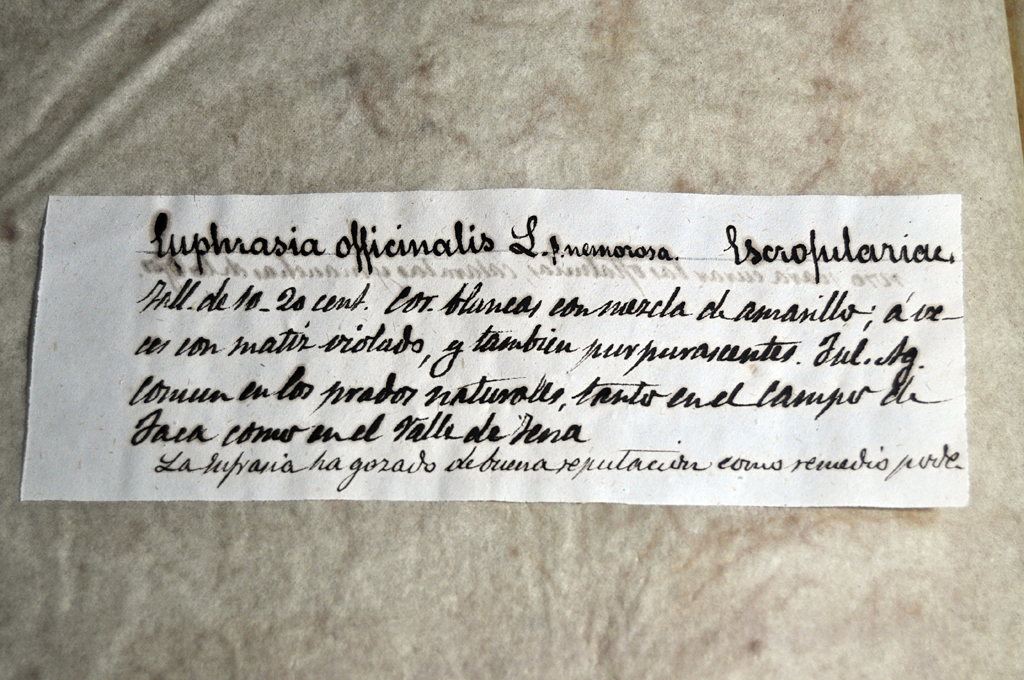 Euphrasia officinalis L. f. nemorosa. Escrofulariac.
Tall. de 10-20 cent. Cor. blancas con mezcla de amarillo; á ve-
ces con matiz violado, y tambien purpurascentes. Jul. Ag.
Comun en los prados naturales, tanto en el Campo de
Jaca como en el Valle de Tena
La Eufrasia ha gozado de buena reputacion como remedio pode-